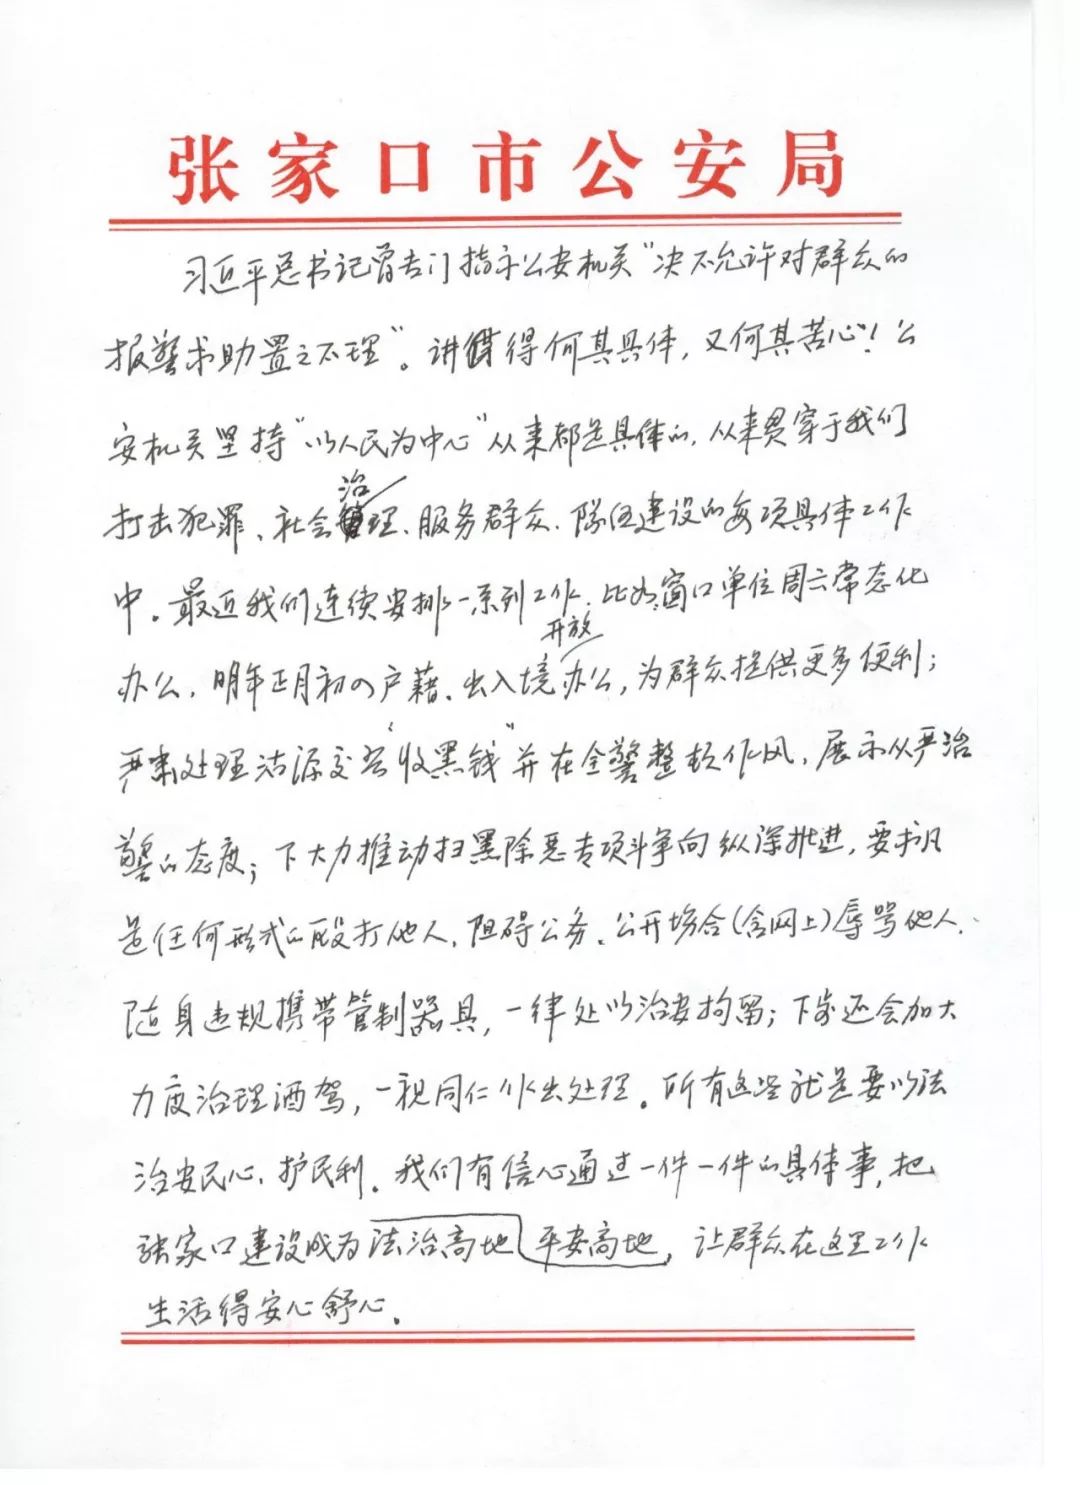 张家口市公安局
习近平总书记曾专门指示公安机关“决不允许对群众的
报警求助置之不理”。讲得何其具体，又何其苦心！公
安机关坚持“以人民为中心”从来都是具体的，从来贯穿于我们
打击犯罪、社会治理、服务群众、队伍建设的每项具体工作
中。最近我们连续安排一系列工作，比如，窗口单位周六常态化
办公，明年正月初八户籍、出入境开放办公，为群众提供更多便利；
严肃处理沽源交警“收黑钱”并在全警整顿作风，展示从严治
警的态度；下大力推动扫黑除恶专项斗争向纵深推进，要求凡
是任何形式的殴打他人、阻碍公务、公开场合(含网上)辱骂他人、
随身违规携带管制器具，一律处以治安拘留；下步还会加大
力度治理酒驾，一视同仁作出处理。所有这些就是要以法
治安民心、护民利。我们有信心通过一件一件的具体事，把
张家口建设成为法治高地平安高地，让群众在这里工作
生活得安心舒心。